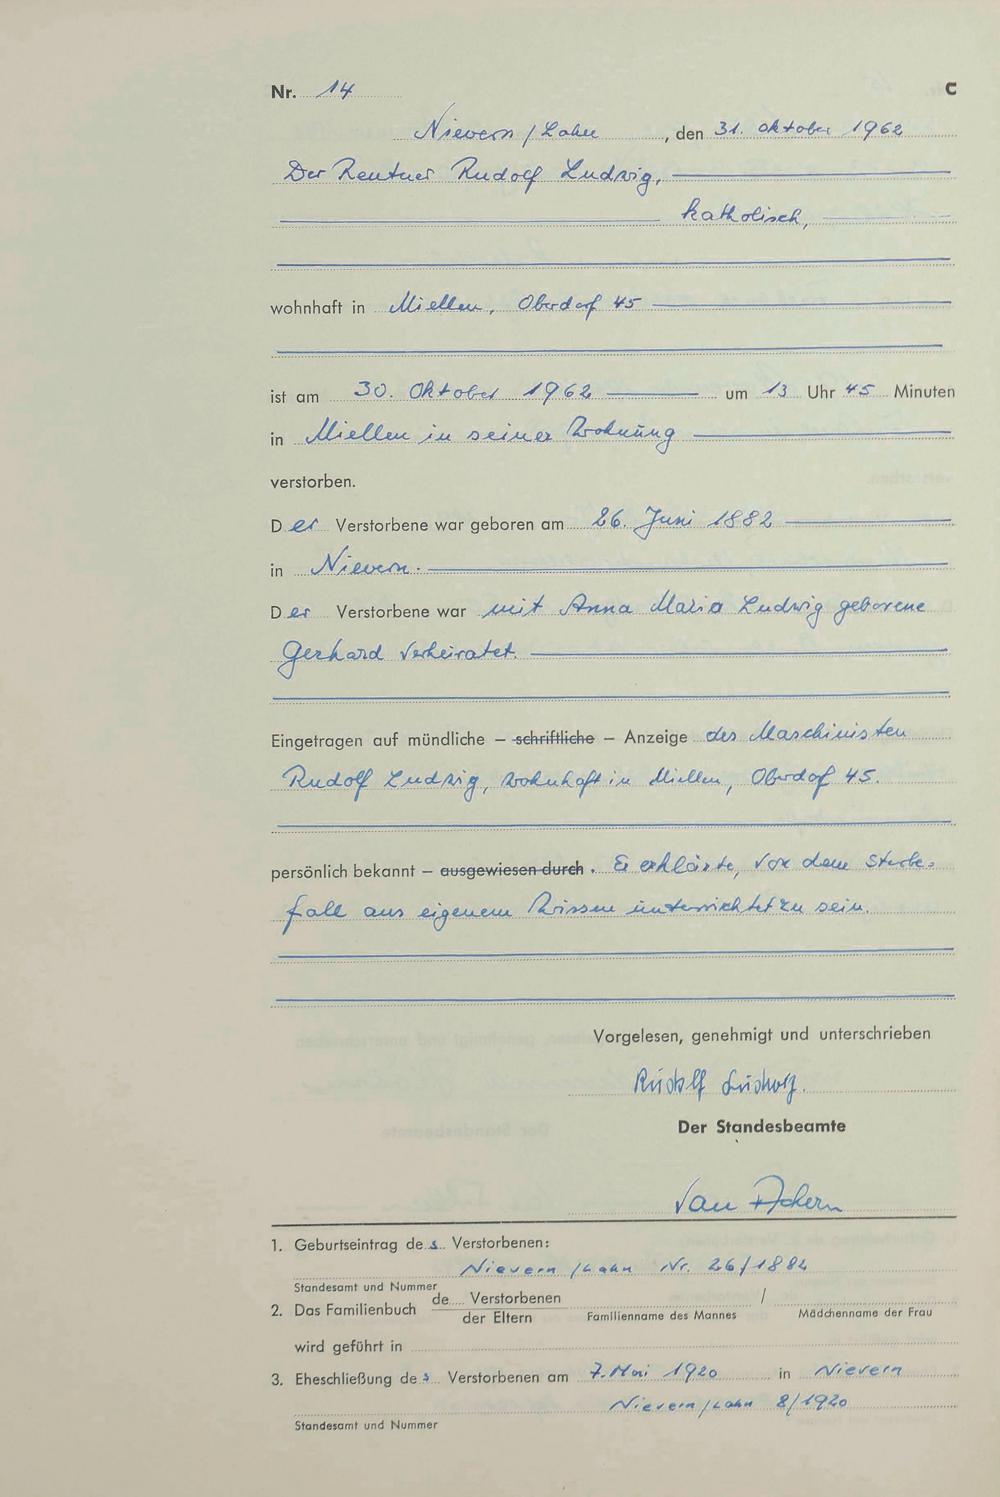 Nr. 14 C
Nievern / Lahn, den 31. Oktober 1962
Der Rentner Rudolf Ludwig,
katholisch,
wohnhaft in Miellen, Oberdorf 45
ist am 30. Oktober 1962 um 13 Uhr 45 Minuten
in Miellen in seiner Wohnung
verstorben.
Der Verstorbene war geboren am 26. Juni 1882
in Nievern.
Der Verstorbene war mit Anna Maria Ludwig geborene
Gerhard verheiratet.
Eingetragen auf mündliche – schriftliche – Anzeige des Maschinisten
Rudolf Ludwig, wohnhaft in Miellen, Oberdorf 45.
persönlich bekannt – ausgewiesen durch. Er erklärte, von dem Sterbe-
fall aus eigenem Wissen unterrichtet zu sein.
Vorgelesen, genehmigt und unterschrieben
Rudolf Ludwig.
Der Standesbeamte
van Ackern
1. Geburtseintrag des Verstorbenen:
Nievern / Lahn Nr. 26/1882
Standesamt und Nummer
2. Das Familienbuch de Verstorbenen /
der Eltern Familienname des Mannes Mädchenname der Frau
wird geführt in
3. Eheschließung des Verstorbenen am 7. Mai 1920 in Nievern
Nievern/Lahn 8/1920
Standesamt und Nummer